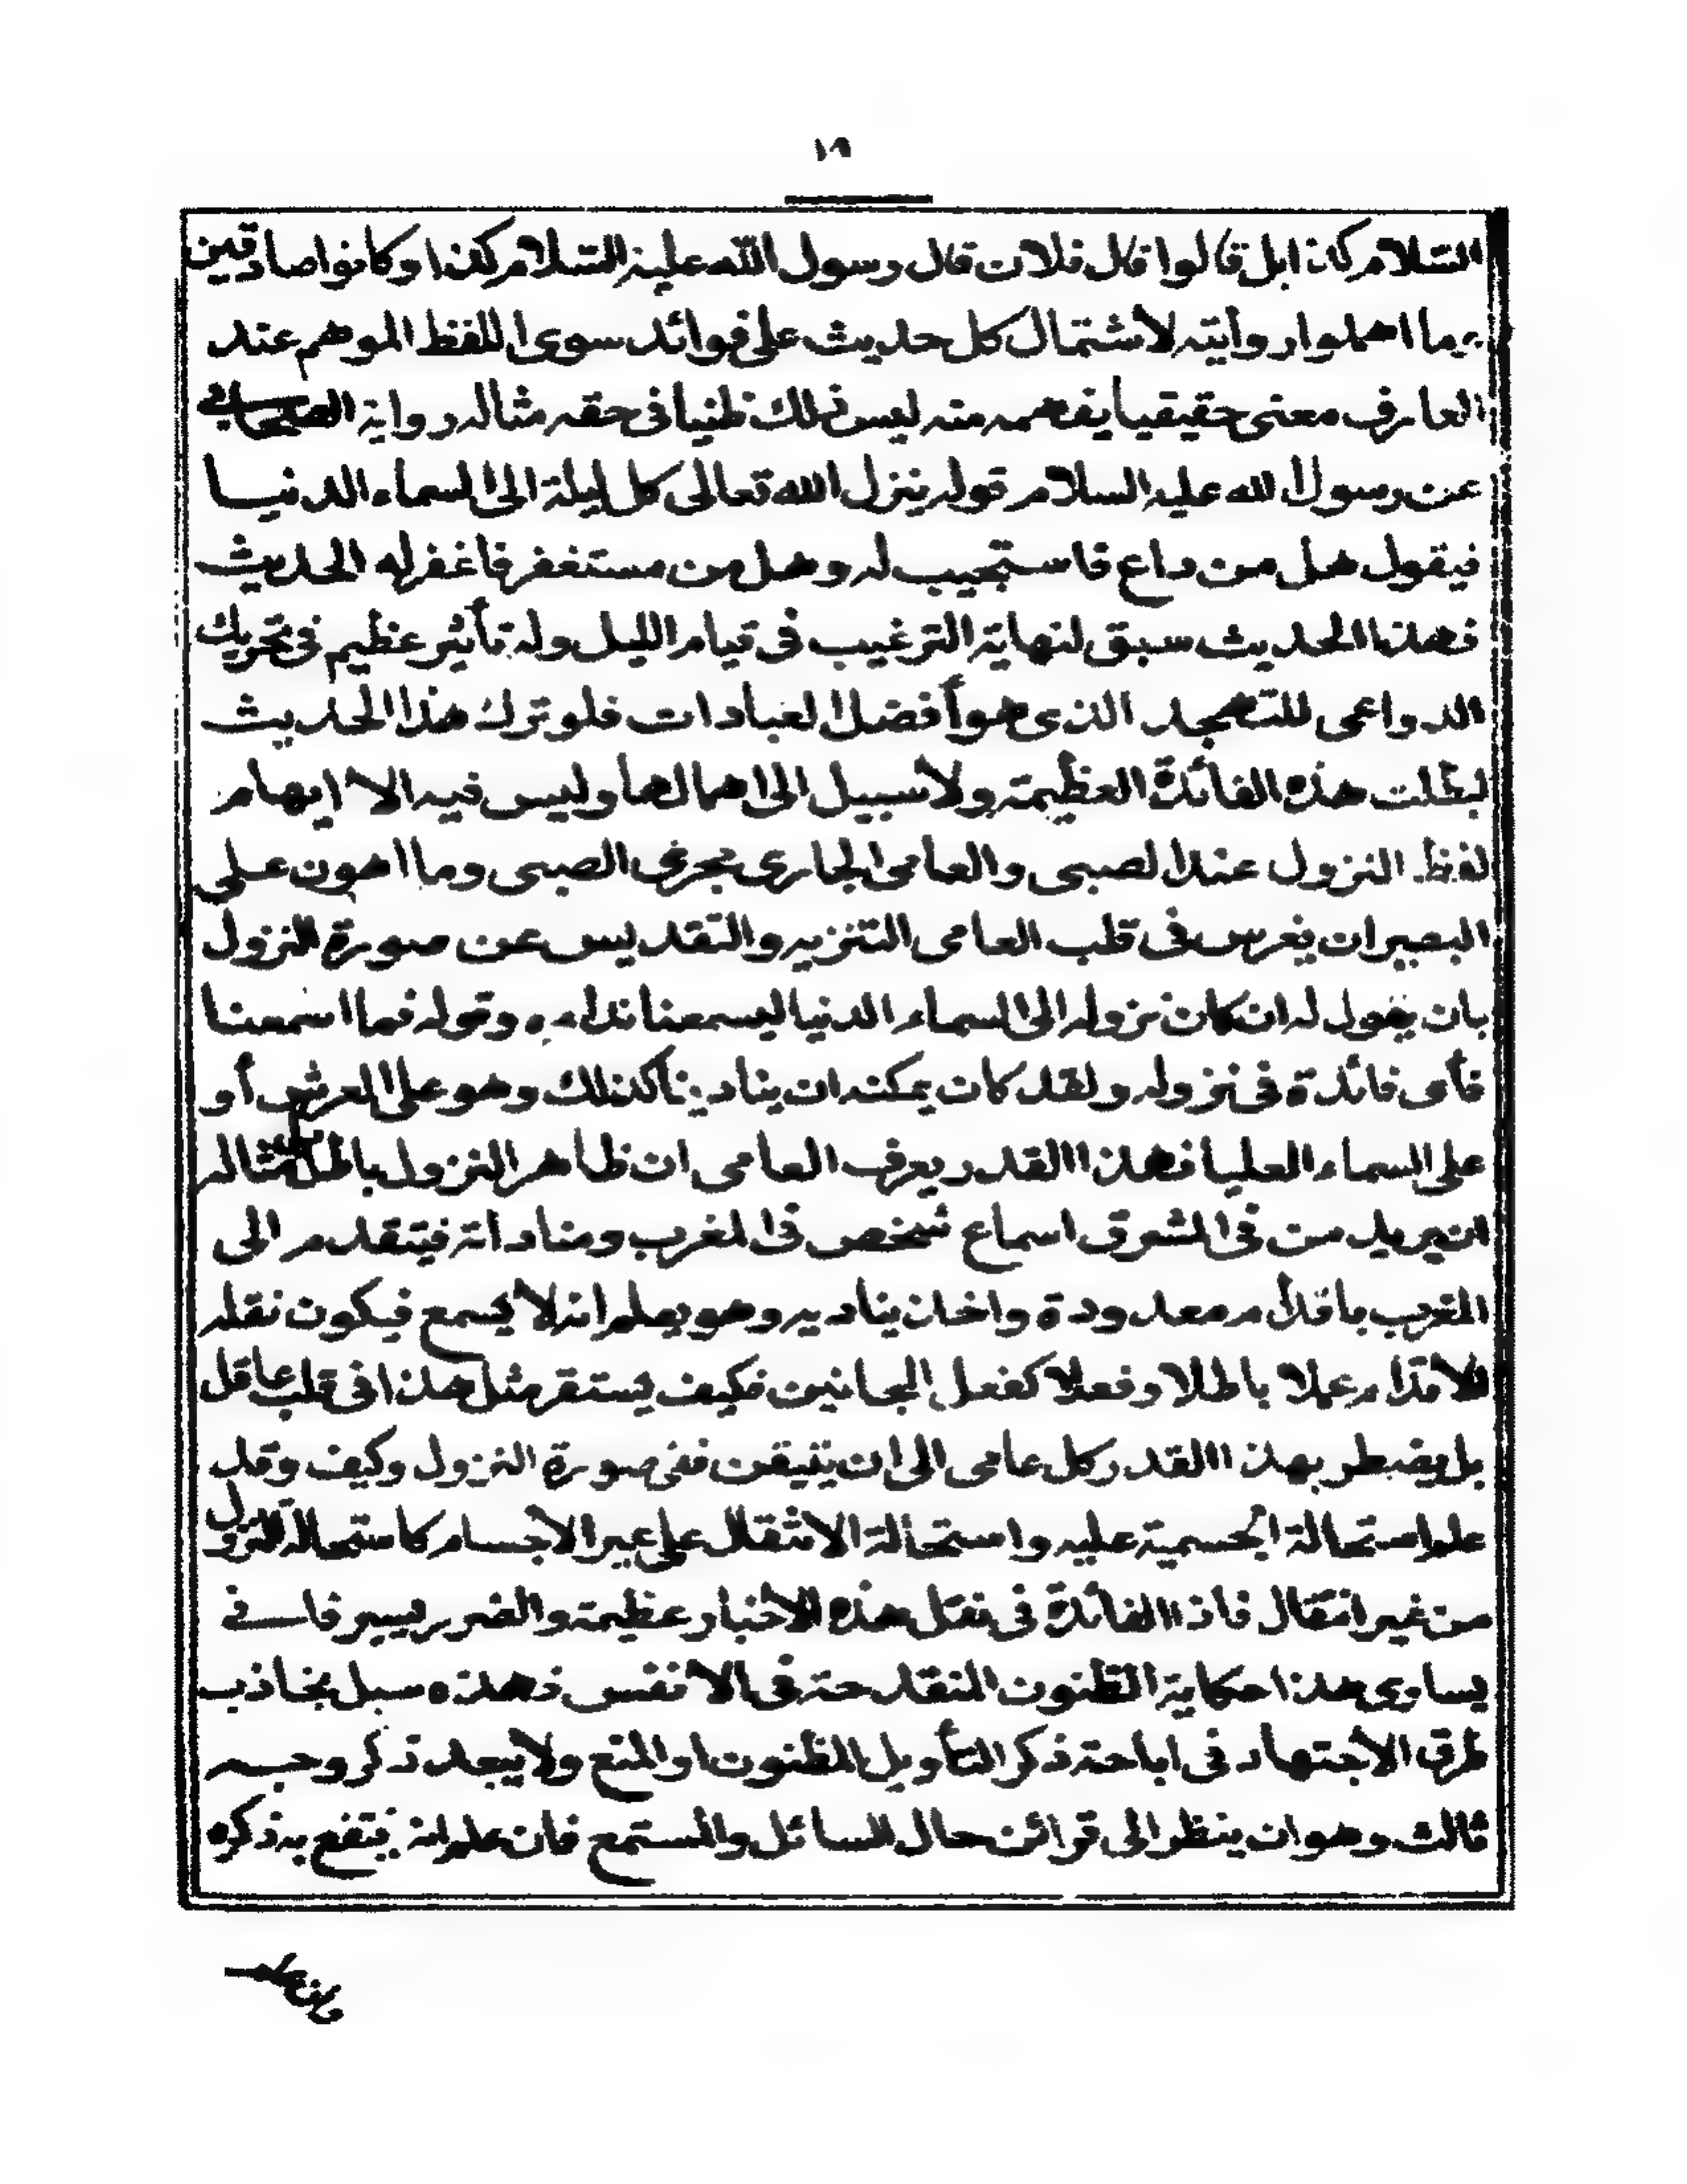 ١٩
السلام كذا بل قالوا قال فلان قال رسول الله عليه السلام كذا وكانوا صادقين
وما اهملوا روايته لاشتمال كل حديث على فوائد سوى اللفظ الموهم عند
العارف معنى حقيقيا يفهمه منه ليس ذلك ظنيا في حقه مثاله رواية الصحابي
عن رسول الله عليه السلام قوله ينزل الله تعالى كل ليلة الى السماء الدنيا
فيقول هل من داع فاستجيب له وهل من مستغفر فاغفر له الحديث
فهذا الحديث سبق لنهاية الترغيب في قيام الليل وله تأثير عظيم في تحريك
الدواعى للتهجد الذى هو أفضل العبادات فلو ترك هذا الحديث
لبطلت هذه الفائدة العظيمة ولا سبيل الى اهمالها وليس فيه الا ايهام
لفظ النزول عند الصبى والعامى الجارى مجرى الصبى وما اهون على
البصير ان يغرس فى قلب العامى التنزيه والتقديس عن صورة النزول
بان يقول له ان كان نزوله الى السماء الدنيا ليسمعنا نداءه وقوله فما اسمعنا
فأى فائدة فى نزوله ولقد كان يمكنه ان ينادينا كذلك وهو على العرش أو
على السماء العليا فهذا القدر يعرف العامى ان ظاهر النزول باطل مثاله
ان يريد من فى المشرق اسماع شخص فى المغرب ومناداته فيتقدم الى
المغرب باقدام معدودة واخذ يناديه وهو يعلم انه لا يسمع فيكون نقله
للاقدام عملا باطلا وفعلا كفعل المجانين فكيف يستقر مثل هذا فى قلب عاقل
بل يضطر بهذا القدر كل عامى الى ان يتيقن نفى صورة النزول وكيف وقد
علم استحالة الجسمية عليه واستحالة الانتقال على غير الاجسام كاستحالة النزول
من غير انتقال فاذا الفائدة فى نقل هذه الاخبار عظيمة والضرر يسير فانى
يساوى هذا حكاية الظنون المنقدحة فى الانفس فهذه سبل تجاذب
طرق الاجتهاد فى اباحة ذكر التأويل المظنون او المنع ولا يبعد ذكر وجه
ثالث وهو ان ينظر الى قرائن حال السائل والمستمع فان علم انه ينتفع به ذكره